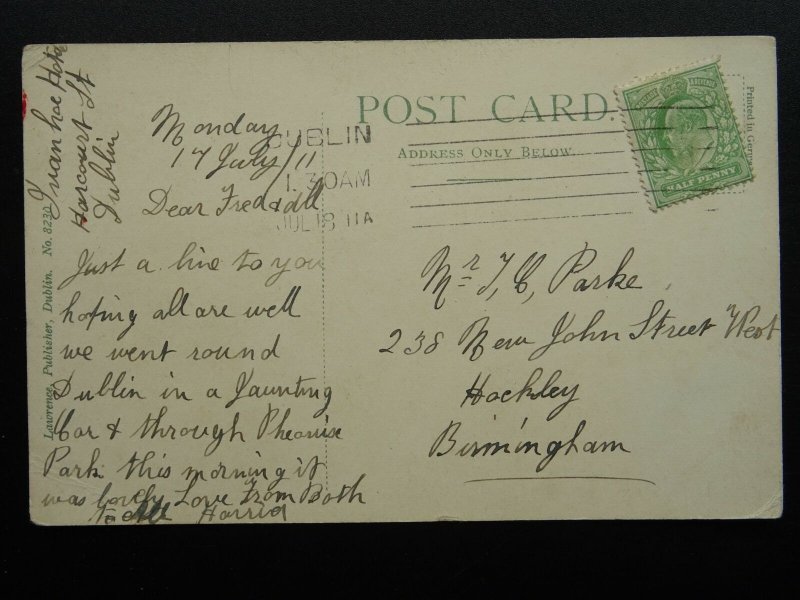 Ivanhoe Hotel
Harcourt St
Dublin
Monday
17 July/11
Dear Fred & all
Just a line to you
hoping all are well
we went round
Dublin in a Jaunting
Car & through Pheonix
Park this morning it
was lovely Love From Both
to All Harried
Lawrence, Publisher, Dublin. No. 8230
POST CARD.
ADDRESS ONLY BELOW.
DUBLIN
1.30AM
JUL 18 11A
HALF PENNY
Printed in Germ
Mr. T, C, Parke
238 New John Street West
Hockley
Birmingham